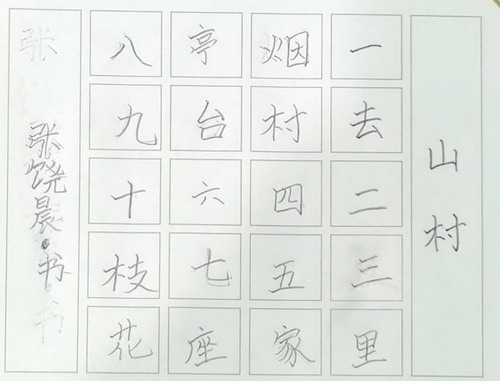 山村
一去二三里
烟村四五家
亭台六七座
八九十枝花
张饶晨·书